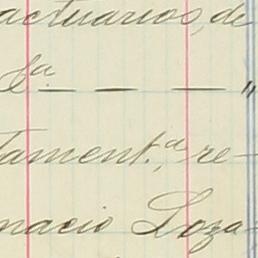 actuarios, de
fª. — — — "
tament.ª, re-
nacio Loza-